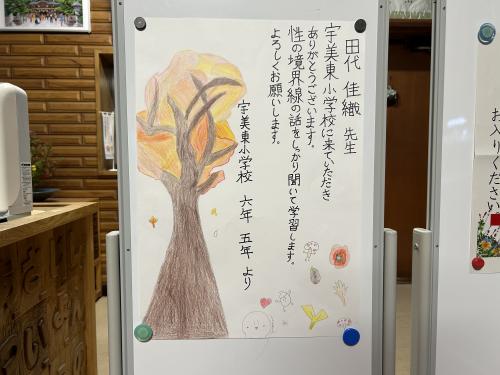 田代 佳織 先生
宇美東小学校に来ていただき
ありがとうございます。
性の境界線の話をしっかり聞いて学習します。
よろしくお願いします。
宇美東小学校 六年 五年 より
お入りください